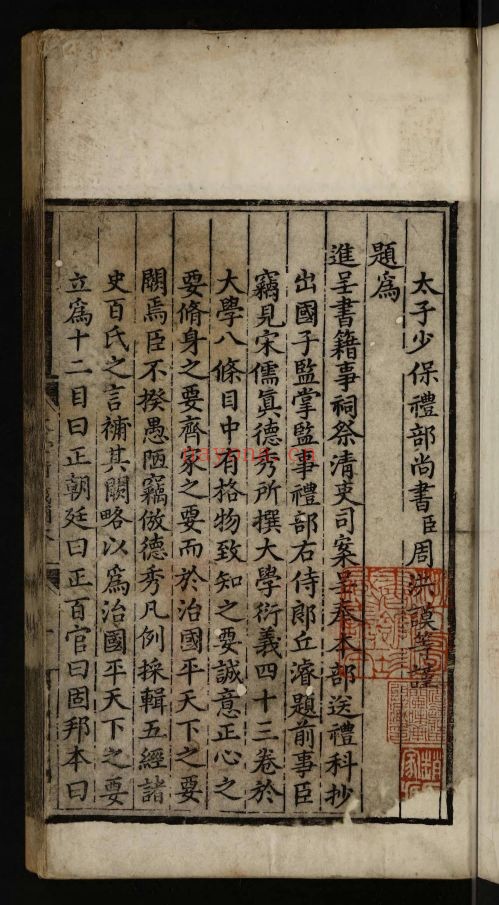 太子少保禮部尚書臣周洪謨等謹
題爲
進呈書籍事祠祭清吏司案呈奉本部送禮科抄
出國子監掌監事禮部右侍郎丘濬題前事臣
竊見宋儒眞德秀所撰大學衍義四十三卷於
大學八條目中有格物致知之要誠意正心之
要脩身之要齊家之要而於治國平天下之要
闕焉臣不揆愚陋竊倣德秀凡例採輯五經諸
史百氏之言補其闕略以爲治國平天下之要
立爲十二目曰正朝廷曰正百官曰固邦本曰